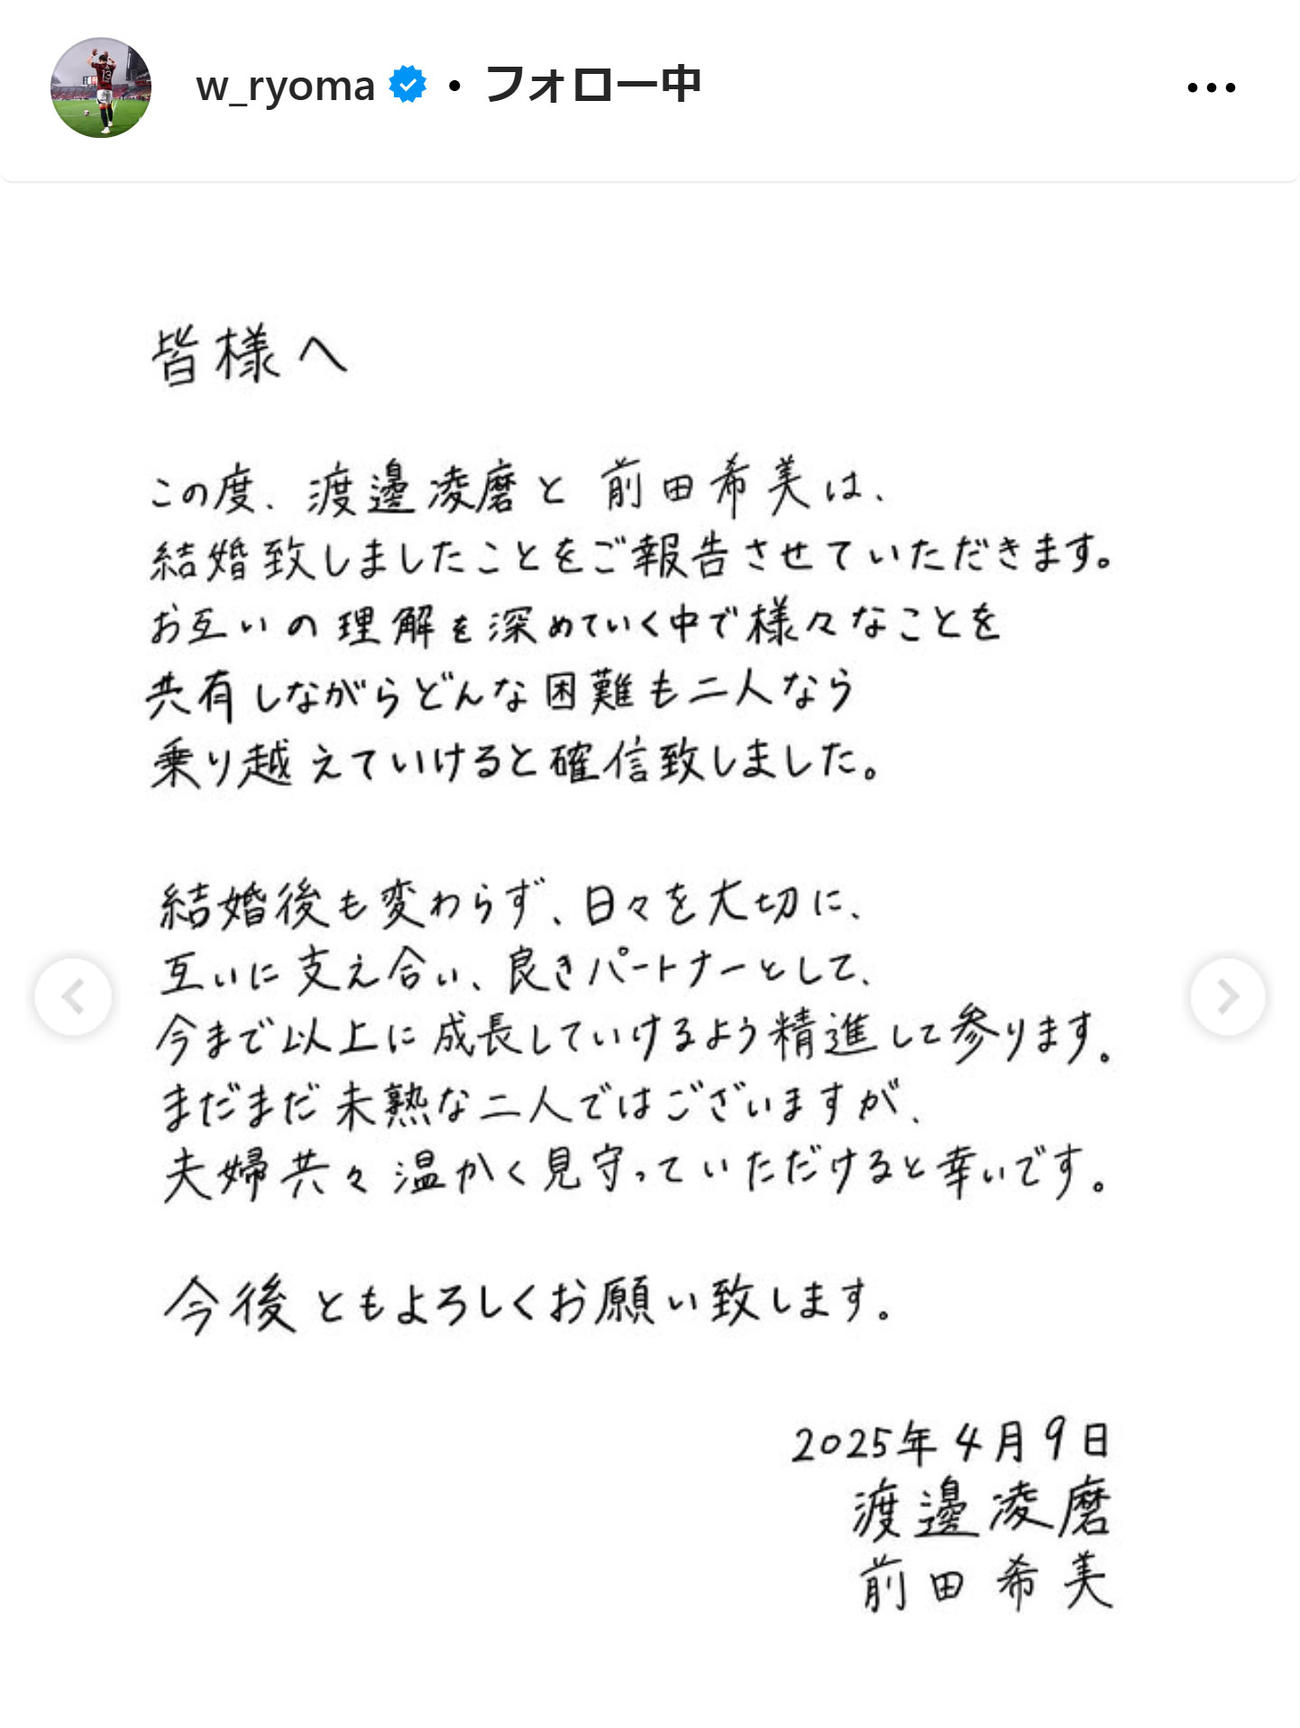 w_ryoma • フォロー中
皆様へ
この度、渡邊凌磨と前田希美は、
結婚致しましたことをご報告させていただきます。
お互いの理解を深めていく中で様々なことを
共有しながらどんな困難も二人なら
乗り越えていけると確信致しました。
結婚後も変わらず、日々を大切に、
互いに支え合い、良きパートナーとして、
今まで以上に成長していけるよう精進して参ります。
まだまだ未熟な二人ではございますが、
夫婦共々温かく見守っていただけると幸いです。
今後ともよろしくお願い致します。
2025年4月9日
渡邊凌磨
前田希美